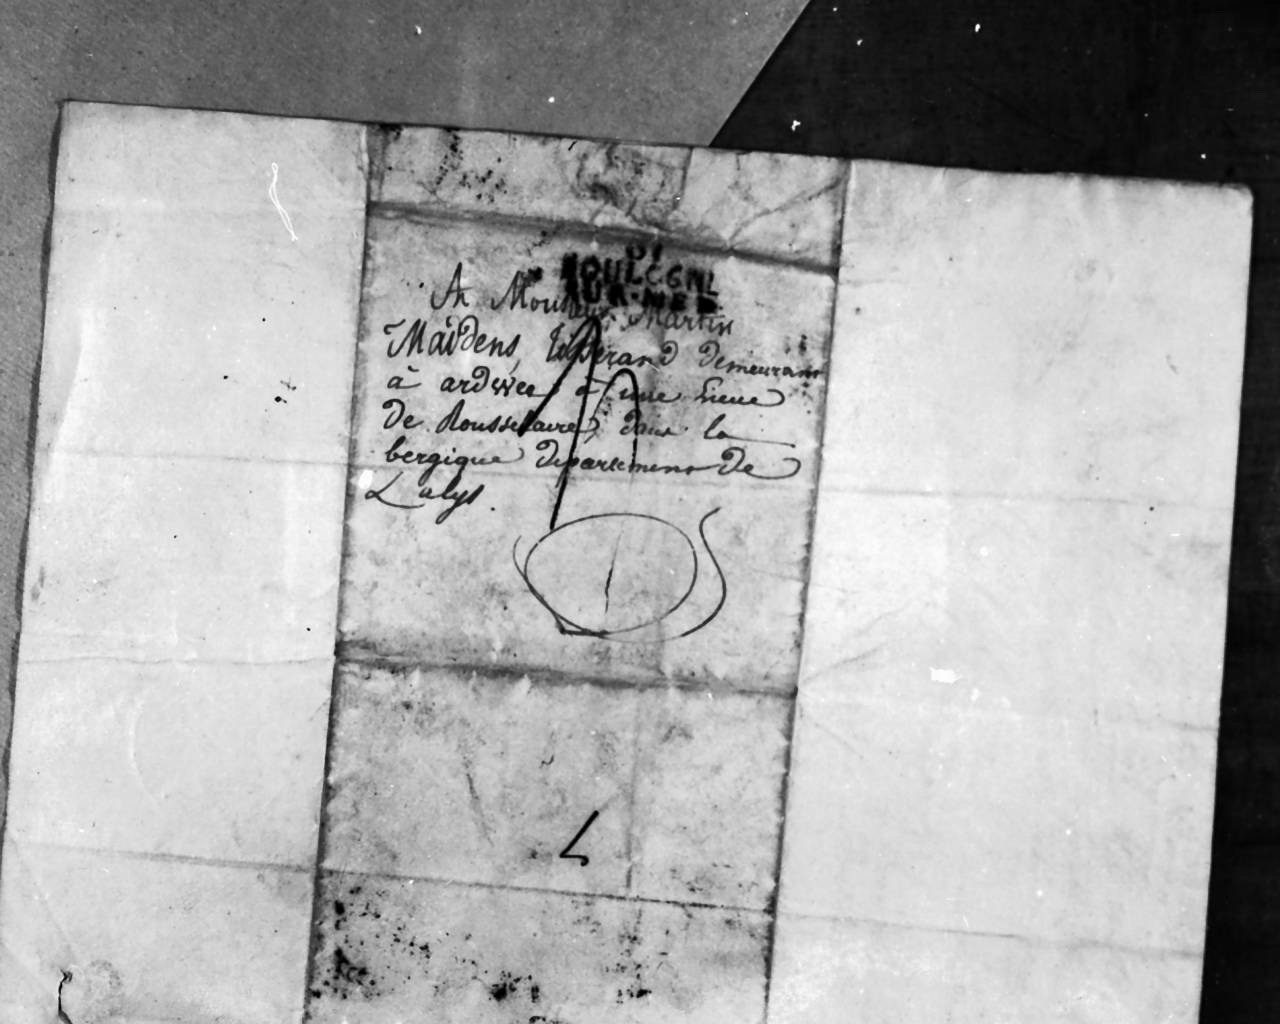 61
BOULOGNE
SUR-MER
A Monsieur Martin
Maidens, tisserand demeurant
à ardwée à une Lieue
de Rousselaire, dans la
bergique departement de
Lalys.